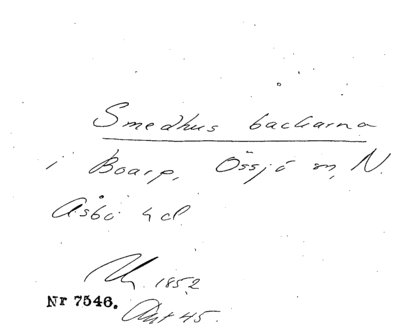 Smedhus backarna
i Boarp, Össjö sn, N.
Åsbo hd.
1852
Nr 7546.
Ant 45.